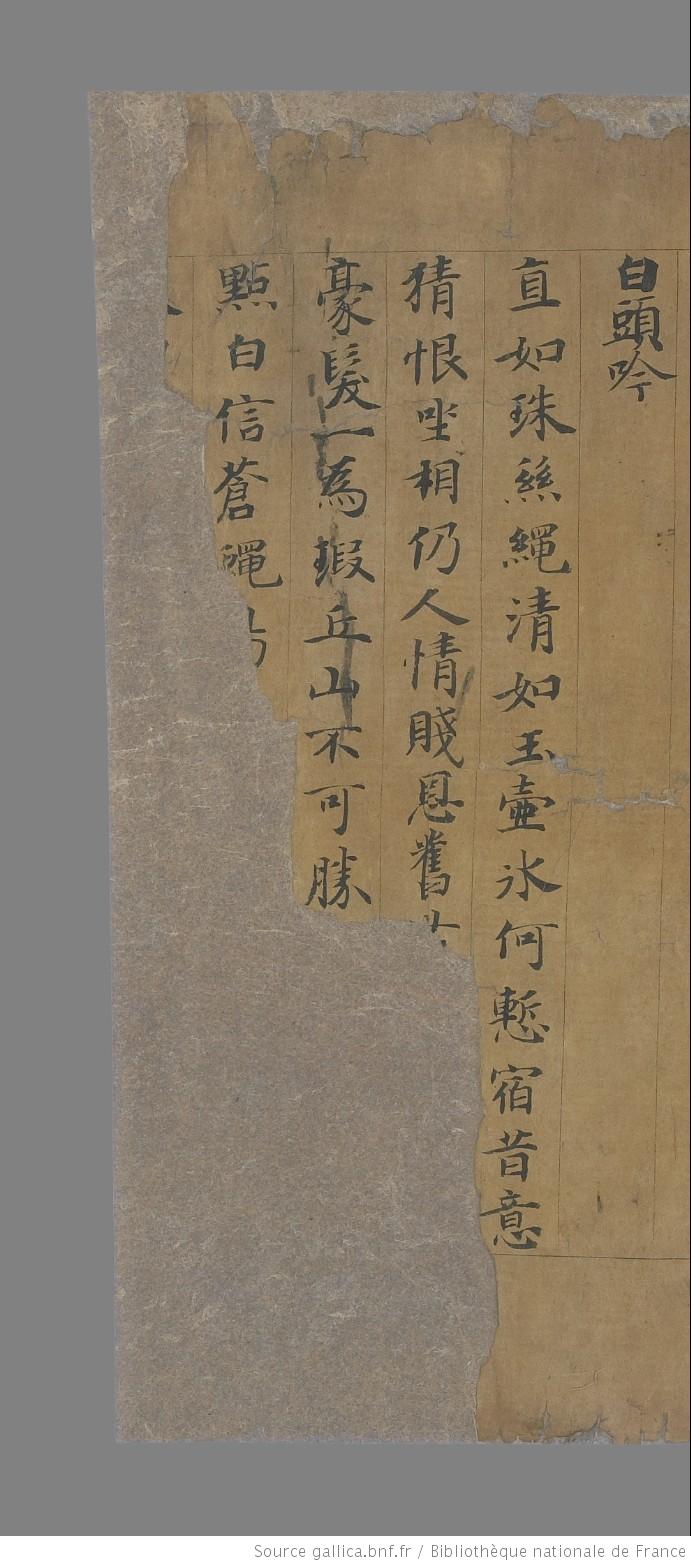 白頭吟
直如珠絲繩清如玉壺氷何慙宿昔意
猜恨唑相仍人情賤恩舊
豪髮一為瑕丘山不可勝
點白信蒼蠅
Source gallica.bnf.fr / Bibliothèque nationale de France